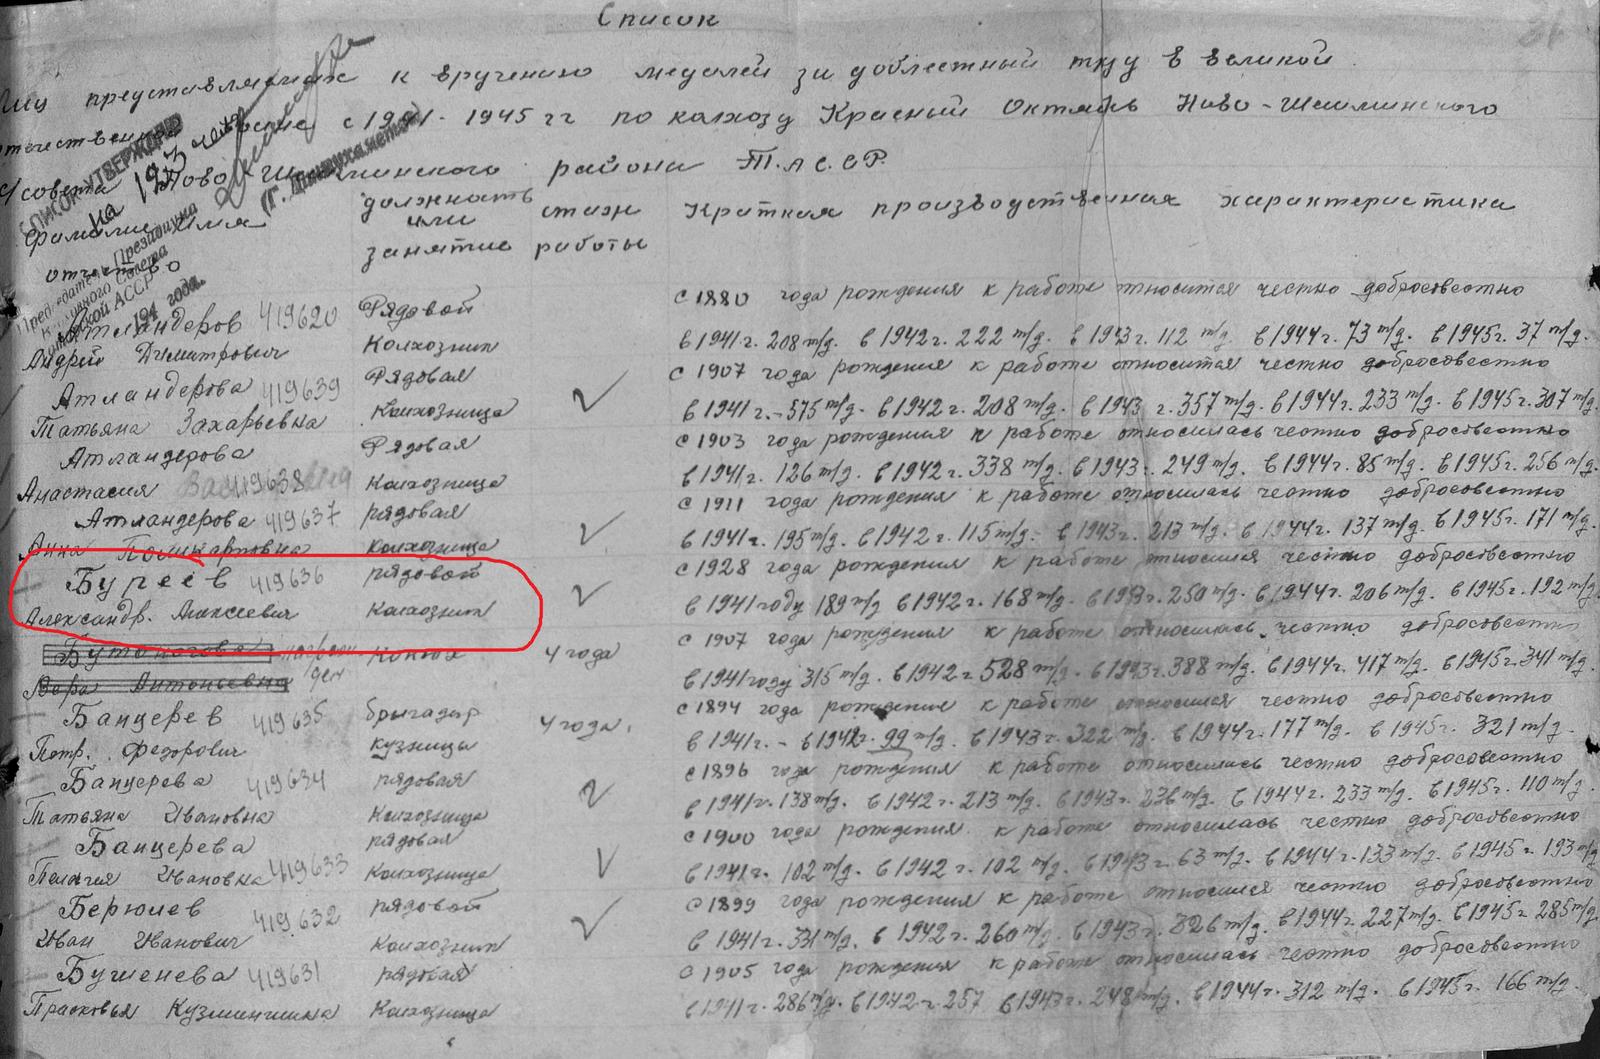 Список
Лиц представляемых к вручению медалей за доблестный труд в великой
отечественной войне с 1941-1945 гг по колхозу Красный Октябрь Ново-Шешминского
с/совета Ново-Шешминского района Т.А.С.С.Р.
СПИСОК УТВЕРЖДАЮ
на 123 чел.
Фамилия Имя отчество
должность или занятие
стаж работы
Краткая производственная характеристика
194 года.
Атландеров 419620 Рядовой с 1880 года рождения к работе относится честно добросовестно
Андрей Дмитрович Колхозник в 1941 г. 208 т/д. в 1942 г. 222 т/д. в 1943 г. 112 т/д. в 1944 г. 73 т/д. в 1945 г. 37 т/д.
Атландерова 419639 Рядовая с 1907 года рождения к работе относится честно добросовестно
Татьяна Захарьевна колхозница в 1941 г. - 575 т/д. в 1942 г. 208 т/д. в 1943 г. 357 т/д. в 1944 г. 233 т/д. в 1945 г. 307 т/д.
Атландерова Рядовая с 1903 года рождения к работе относилась честно добросовестно
Анастасия 419638 Колхозница в 1941 г. 126 т/д. в 1942 г. 338 т/д. в 1943 г. 249 т/д. в 1944 г. 85 т/д. в 1945 г. 256 т/д.
Атландерова 419637 рядовая с 1911 года рождения к работе относилась честно добросовестно
Анна Поликарповна колхозница в 1941 г. 195 т/д. в 1942 г. 115 т/д. в 1943 г. 213 т/д. в 1944 г. 137 т/д. в 1945 г. 171 т/д.
Буреев 419636 рядовой с 1928 года рождения к работе относился честно добросовестно
Александр. Алексеевич Колхозник в 1941 году 189 т/д в 1942 г. 168 т/д. в 1943 г. 250 т/д. в 1944 г. 206 т/д. в 1945 г. 192 т/д.
конюх 4 года с 1907 года рождения к работе относилась честно добросовестно
Вера Антоньевна в 1941 году 315 т/д. в 1942 г. 528 т/д. в 1943 г. 388 т/д. в 1944 г. 417 т/д. в 1945 г. 341 т/д.
Банцерев 419635 бригадир 4 года. с 1894 года рождения к работе относился честно добросовестно
Петр. Федорович кузницы в 1941 г. - в 1942 г. 99 т/д. в 1943 г. 322 т/д. в 1944 г. 177 т/д. в 1945 г. 321 т/д.
Банцерева 419634 рядовая с 1896 года рождения к работе относилась честно добросовестно
Татьяна Ивановна Колхозница в 1941 г. 138 т/д. в 1942 г. 213 т/д. в 1943 г. 236 т/д. в 1944 г. 233 т/д. в 1945 г. 110 т/д.
Банцерева рядовая с 1900 года рождения к работе относилась честно добросовестно
Пелагея Ивановна 419633 Колхозница в 1941 г. 102 т/д. в 1942 г. 102 т/д. в 1943 г. 63 т/д. в 1944 г. 133 т/д. в 1945 г. 193 т/д
Берюлев 419632 рядовой с 1899 года рождения к работе относился честно добросовестно
Иван Иванович Колхозник в 1941 г. 331 т/д. в 1942 г. 260 т/д. в 1943 г. 326 т/д. в 1944 г. 227 т/д. в 1945 г 285 т/д.
Бушенева 419631 рядовая с 1905 года рождения к работе относилась честно добросовестно
Прасковья Кузминишна Колхозница в 1941 г. 286 т/д. в 1942 г. 257 в 1943 г. 248 т/д. в 1944 г. 312 т/д. в 1945 г. 166 т/д.